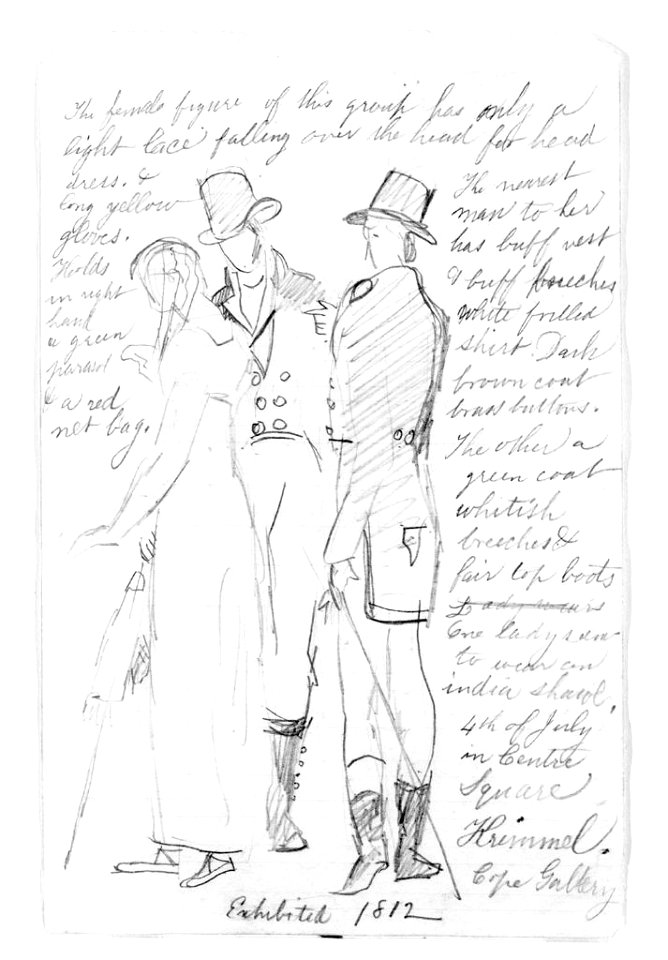 The female figure of this group has only a
light lace falling over the head for head
dress. &
long yellow
gloves.
Holds
in right
hand
a green
parasol
& a red
net bag.
The nearest
man to her
has buff vest
& buff breeches
white frilled
shirt. Dark
brown coat
brass buttons.
The other a
green coat
whitish
breeches &
fair top boots
Lady wears
One lady seen
to wear an
india shawl.
4th of July
in Centre
Square
Krimmel.
Cope Gallery
Exhibited 1812